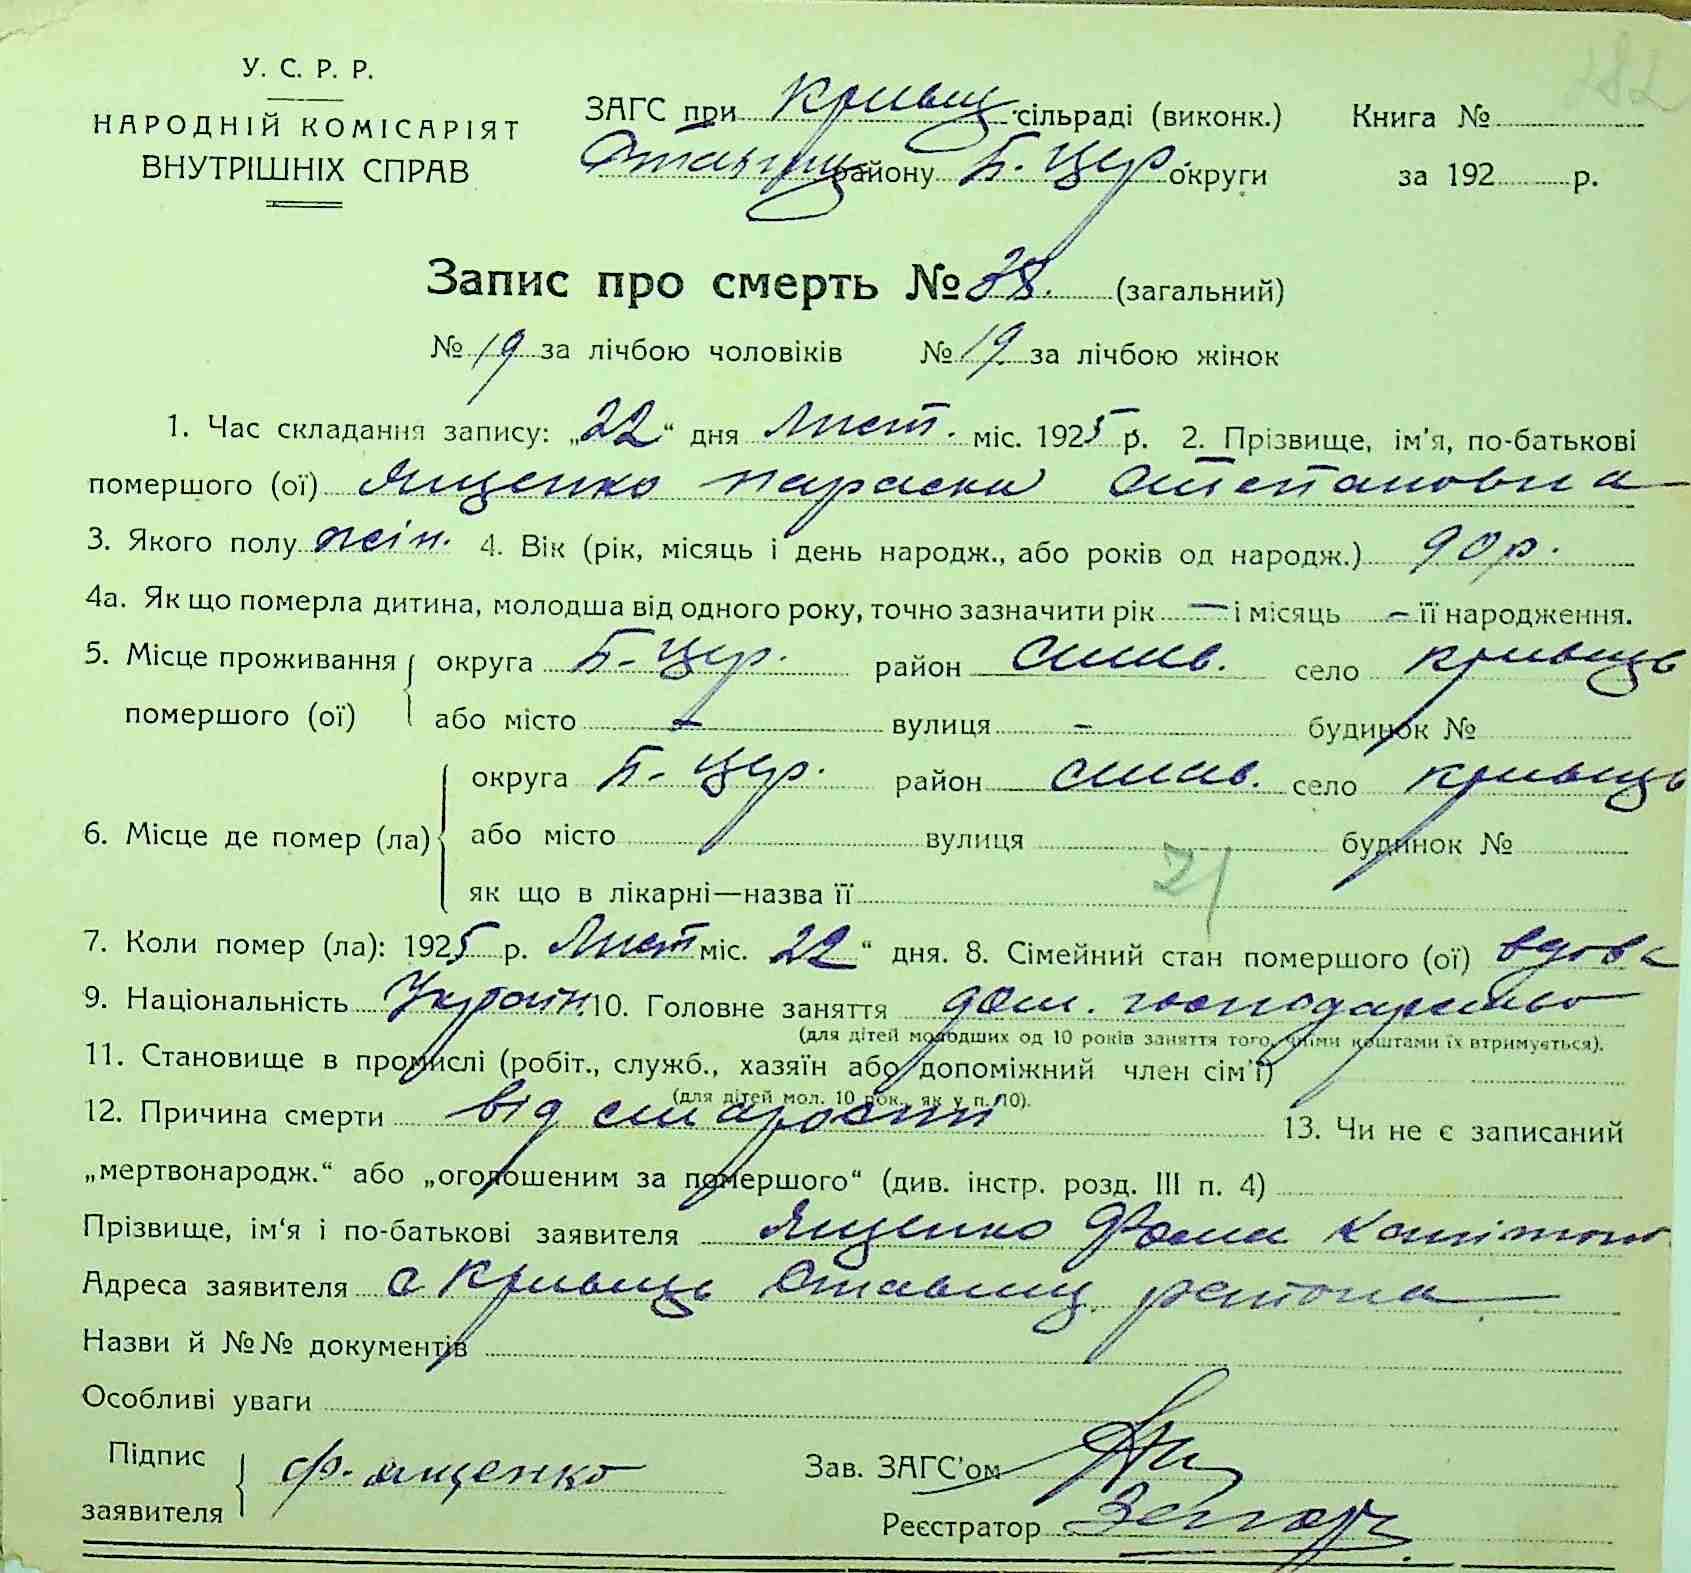 У. С. Р. Р.
НАРОДНІЙ КОМІСАРІЯТ
ВНУТРІШНІХ СПРАВ
ЗАГС при Кривец сільраді (виконк.) Книга №
району Б. Цер. округи за 192 р.
282
Запис про смерть № 38. (загальний)
№ 19 за лічбою чоловіків № 19 за лічбою жінок
1. Час складання запису: „22“ дня Лист. міс. 1925 р. 2. Прізвище, ім'я, по-батькові
помершого (ої) Ященко Параски Степановна
3. Якого полу жін. 4. Вік (рік, місяць і день народж., або років од народж.) 90 р.
4а. Як що померла дитина, молодша від одного року, точно зазначити рік — і місяць – її народження.
5. Місце проживання помершого (ої) округа Б. Цер. район село Кривець
або місто – вулиця – будинок №
6. Місце де помер (ла) округа Б. Цер. район село Кривець
або місто вулиця будинок №
як що в лікарні—назва її
21
7. Коли помер (ла): 1925 р. Лист міс. 22“ дня. 8. Сімейний стан помершого (ої) вдова
9. Національність Україн. 10. Головне заняття дом. господарство
(для дітей молодших од 10 років заняття того, чиїми коштами їх втримується).
11. Становище в промислі (робіт., служб., хазяїн або допоміжний член сім'ї)
(для дітей мол. 10 рок., як у п. 10).
12. Причина смерти від старости 13. Чи не є записаний
„мертвонародж.“ або „оголошеним за помершого“ (див. інстр. розд. III п. 4)
Прізвище, ім'я і по-батькові заявителя Ященко Фома
Адреса заявителя с Кривець Ставищ. района
Назви й №№ документів
Особливі уваги
Підпис заявителя Ф. Ященко Зав. ЗАГС'ом
Реєстратор